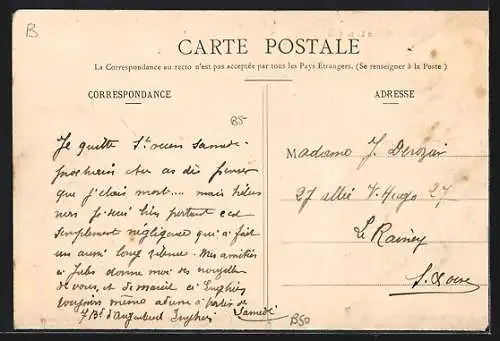 B
CARTE POSTALE
La Correspondance au recto n'est pas acceptée par tous les Pays Étrangers. (Se renseigner à la Poste)
CORRESPONDANCE
ADRESSE
B5-
Je quitte St ouen Samedi
prochain cher as dû penser
que j'étais mort.... mais hélas
non je suis bien portant c'est
simplement négligence qui a fait
un aussi long silence. Mes amitiés
à Jules donne moi des nouvelles
de vous, et de Marcel à Enghien
toujours même adresse à partir de
7 Bd d'Argenteuil Enghien Samedi
Madame J. Derozair
27 allée V. Hugo 27
Le Raincy
S. & Oise
B50